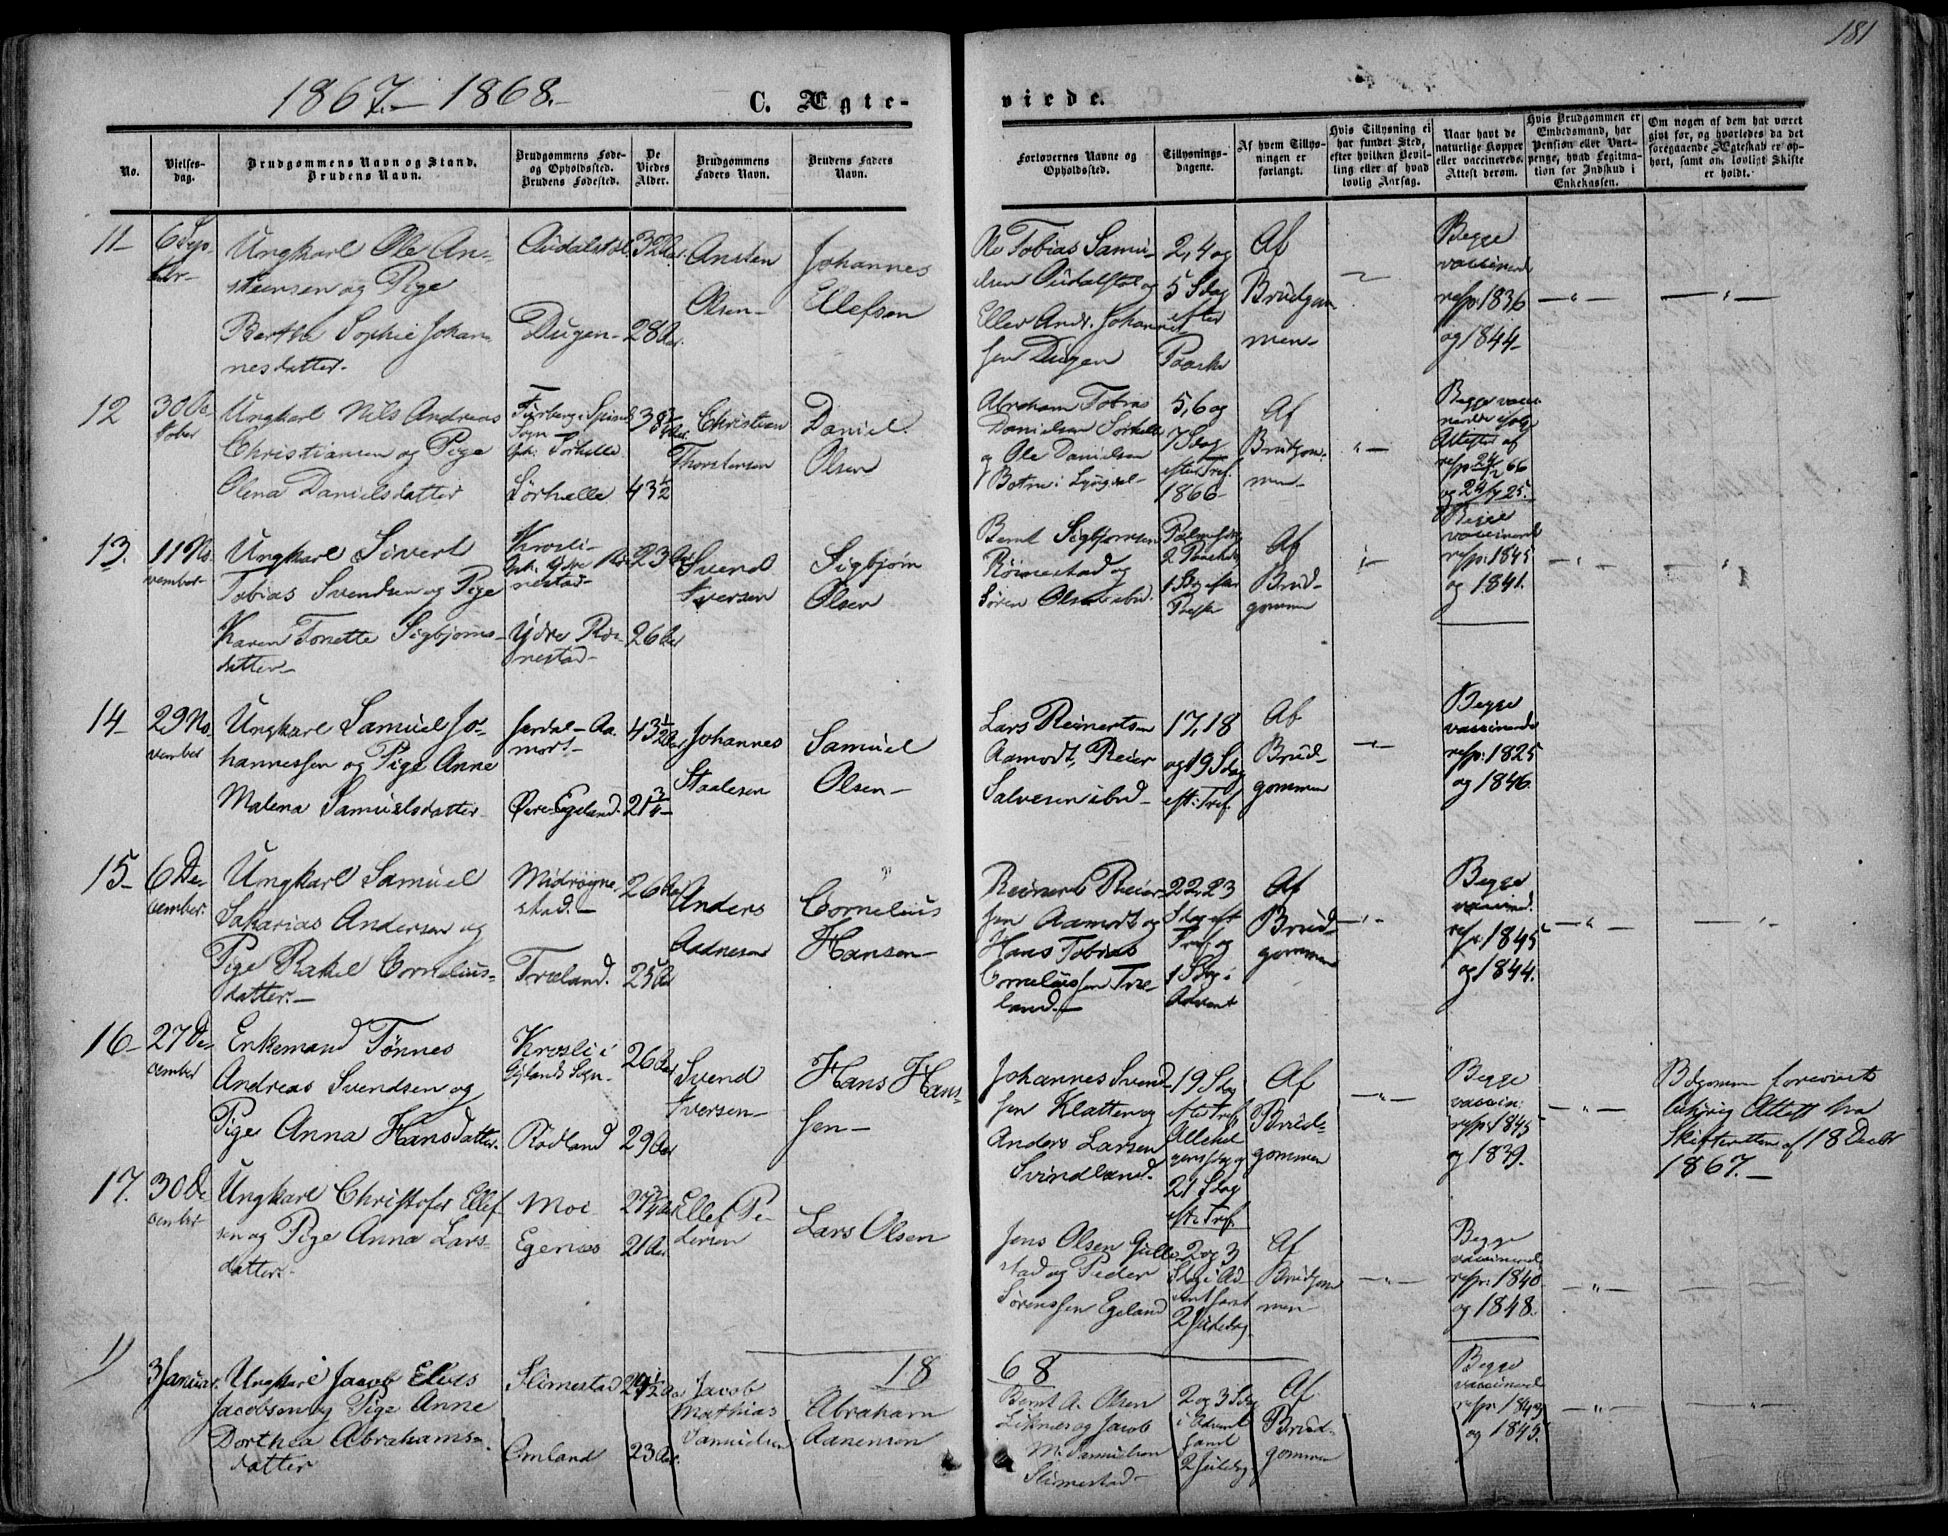 181
1867.- 1868.-
C. Ægte-
viede.
No.
Vielses-
dag.
Brudgommens Navn og Stand.
Brudens Navn.
Brudgommens Føde-
og Opholdssted.
Brudens Fødested.
De
Viedes
Alder.
Brudgommens
Faders Navn.
Brudens Faders
Navn.
Forlovernes Navne og
Opholdssted.
Tillysnings-
dagene.
Af hvem Tillys-
ningen er
forlangt.
Hvis Tillysning ei
har fundet Sted,
efter hvilken Bevil-
ling eller af hvad
lovlig Aarsag.
Naar havt de
naturlige Kopper
eller vaccinerede.
Attest derom.
Hvis Brudgommen er
Embedsmand, har
Pension eller Vart-
penge, hvad Legitima-
tion for Indskud i
Enkekassen.
Om nogen af dem har været
givt for, og hvorledes da det
foregaaende Ægteskab er op-
hørt, samt om lovligt Skifte
er holdt.
11-
6 Sep-
tbr-
Ungkarl Ole An-
stensen og Pige
Berthe Sophie Johan-
nesdatter.
Audalstøl
Dugen-
32 Aar
28 Aar
Ansten
Olsen-
Johannes
Ellefsen
Ole Tobias Samu-
elsen Audalstøl og
Eller Andr. Johannes-
sen Dugen
2, 4 og
5 Sdag
efter
Paaske
Af
Brudgom-
men-
Begge
vaccinerede
resp: 1836
og 1844-
12
30 Oc-
tober
Ungkarl Nils Andreas
Christiansen og Pige
Olena Danielsdatter
Sogn
Oph. Sørhelle
Sørhelle
43½
Christian
Thorstensen
Daniel
Olsen
Abraham Tobias
Danielsen Sørhelle
og Ole Danielsen
Botne i Lyngdal-
5, 6 og
7 Sdag
efter Tref.
1866-
Af
Brudgom-
men-
Begge vacci-
nerede ifølge
Attester af
resp: 24/2 66
og 24/7 25.
13.
11 No-
vember-
Ungkarl Sivert
Tobias Svendsen og Pige
Karen Tonette Sigbjørns-
datter-
Krosli-
oph. Ydre Røi-
nestad-
Ydre Røi-
nestad-
23 Aar
26 Aar
Svend
Iversen
Sigbjørn
Olsen
Bernt Sigbjørnsen
Røinestad og
Søren Olsen ibid.
Palmesdag
2 Paaskedag
1 Sdag efter
Paaske
Af
Brud-
gommen
Begge
vaccinerede
resp: 1845
og 1841.
14-
29 No-
vember
Ungkarl Samuel Jo-
hannessen og Pige Anne
Malena Samuelsdatter
Jerdal-Aa-
modt.
Øvre Egeland.
43½ Aar
21¾-
Johannes
Staalesen
Samuel
Olsen-
Lars Reinertsen
Aamodt, Reier
Salvesen ibid-
17, 18
og 19 Sdag
eft: Tref.
Af
Brud-
gommen
Begge
vaccinerede
resp: 1825
og 1846.
15-
6 De-
cember.
Ungkarl Samuel
Sakarias Andersen og
Pige Rakel Cornelius-
datter.-
Midrøgne-
stad.-
Træland.
26 Aar
25 Aar
Anders
Aadnesen
Cornelius
Hansen-
Reinert Reier-
sen Aamodt og
Hans Tobias
Corneliussen Træ-
land.-
22, 23
Sdag eft
Tref. og
1 Sdag i
Advent
Af
Brud-
gommen
Begge
vaccined.
resp: 1845
og 1844.
16-
27 De-
cember
Enkemand Tønnes
Andreas Svendsen og
Pige Anna Hansdatter.
Krosli i
Gylands Sogn-
Rødland
26 Aar
29 Aar
Svend
Iversen-
Hans Han-
sen-
Johannes Svend-
sen Klatten og
Anders Larsen
Svindland.
19 Sdag
efter Tref.
Allehel-
gensdag og
21 Sdag
eft: Tref.
Af
Brud-
gommen
Begge
vaccin:
resp: 1845
og 1839.
Bdgommen foreviste
Attest fra
Skifteretten af 18 Decbr
1867.-
17.
30 De-
cember
Ungkarl Christofer Ellef-
sen og Pige Anna Lars-
datter.-
Moi
Egenæs
27¾ Aar
21 Aar.
Ellef Pe-
dersen
Lars Olsen
Jens Olsen Gulle-
stad og Peder
Sørenssen Egeland
2 og 3
Sdag i Ad-
vent samt
2 Juledag.
Af
Brudgom-
men-
Begge
vaccinerede
resp: 1840
og 1848.
18 68
1)
3 Januar.
Ungkarl Jacob Elias
Jacobsen og Pige Anne
Dorthea Abrahams-
datter
Slimestad
Omland
23 Aar.
Jacob
Mathias
Samuelsen
Abraham
Aanensen
Bernt A. Olsen
Liknes og Jacob
M. Samuelsen
Slimestad-
2 og 3 Sdag
i Advent
samt
2 Juledag
Af
Brud-
gommen
Begge
vaccinerede
resp: 1843
og 1845.